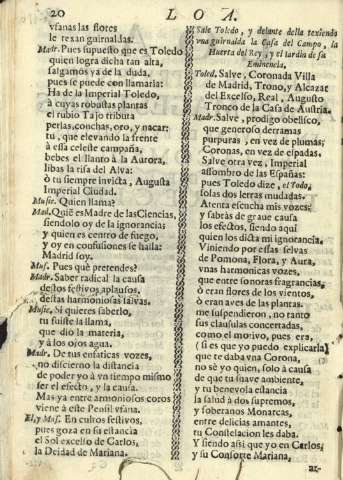 20 LOA.
vfanas las flores
le texan guirnaldas.
Madr. Pues supuesto que es Toledo
quien logra dicha tan alta,
salgamos ya de la duda,
pues se puede con llamarla:
Ha de la Imperial Toledo,
à cuyas robustas plantas
el rubio Tajo tributa
perlas, conchas, oro, y nacar:
tu, que elevando la frente
à essa celeste campaña,
bebes el llanto à la Aurora,
libas la risa del Alva:
ò tu siempre invicta, Augusta
Imperial Ciudad.
Music. Quien llama?
Mad. Quiē es Madre de las Ciencias,
siendolo oy de la ignorancia:
y quien es centro de fuego,
y oy en confusiones se halla:
Madrid soy.
Mus. Pues què pretendes?
Madr. Saber radical la causa
destos festivos aplausos,
destas harmoniosas salvas.
Music. Si quieres saberlo,
tu fuiste la llama,
que diò la materia,
y à los ojos agua.
Madr. De tus enfaticas vozes,
no discierno la distancia
de poder yo à vn tiempo mismo
ser el efecto, y la causa.
Mas ya entre armoniosos coros
viene à este Pensil vfana.
El, y Mus. En cultos festivos,
pues goza en su estancia
el Sol excelso de Carlos,
la Deidad de Mariana.
Sale Toledo, y delante della texiendo
vna guirnalda la Casa del Campo, la
Huerta del Rey, y el Iardin de su
Eminencia.
Toled. Salve, Coronada Villa
de Madrid, Trono, y Alcazar
del Excelso, Real, Augusto
Tronco de la Casa de Austria.
Madr. Salve, prodigo obelisco,
que generoso derramas
purpuras, en vez de plumas;
Coronas, en vez de espadas.
Salve otra vez, Imperial
assombro de las Españas:
pues Toledo dize, el Todo,
solas dos letras mudadas.
Atenta escucha mis vozes;
y sabràs de graue causa
los efectos, siendo aqui
quien los dicta mi ignorancia.
Viniendo por essas selvas
de Pomona, Flora, y Aura,
vnas harmonicas vozes,
que entre sonoras fragrancias,
ò eran flores de los vientos,
ò eran aves de las plantas.
me suspendieron, no tanto
sus clausulas concertadas,
como el motivo, pues era,
(si es que yo puedo explicarla)
que te daba vna Corona,
no sè yo quien, solo à causa
de que tu suave ambiente,
y tu benevola estancia
la salud à dos supremos,
y soberanos Monarcas,
entre delicias amantes,
tu Constelacion les daba.
Y siendo assi que yo en Carlos,
y su Consorte Mariana,